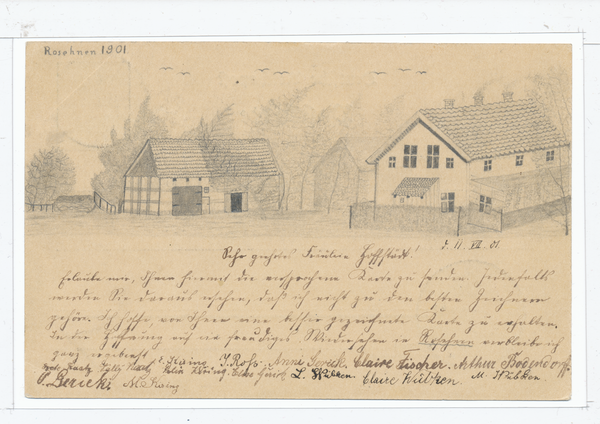 Rosehnen 1901
d. 11. VII. 01.
Sehr geehrtes Fräulein Hoffstädt!
Erlaube mir, Ihnen hiermit die versprochene Karte zu senden. Jedenfalls
werden Sie daraus ersehen, daß ich nicht zu den besten Zeichnern
gehöre. Ich hoffe von Ihnen eine besser gezeichnete Karte zu erhalten.
In der Hoffnung auf ein freudiges Wiedersehen in Rosehnen verbleibe ich
ganz ergebenst
J. Rohs. Anni Claire Fischer. Arthur Bodendorff.
L. Wübken. Claire Wübken. M. Wübken